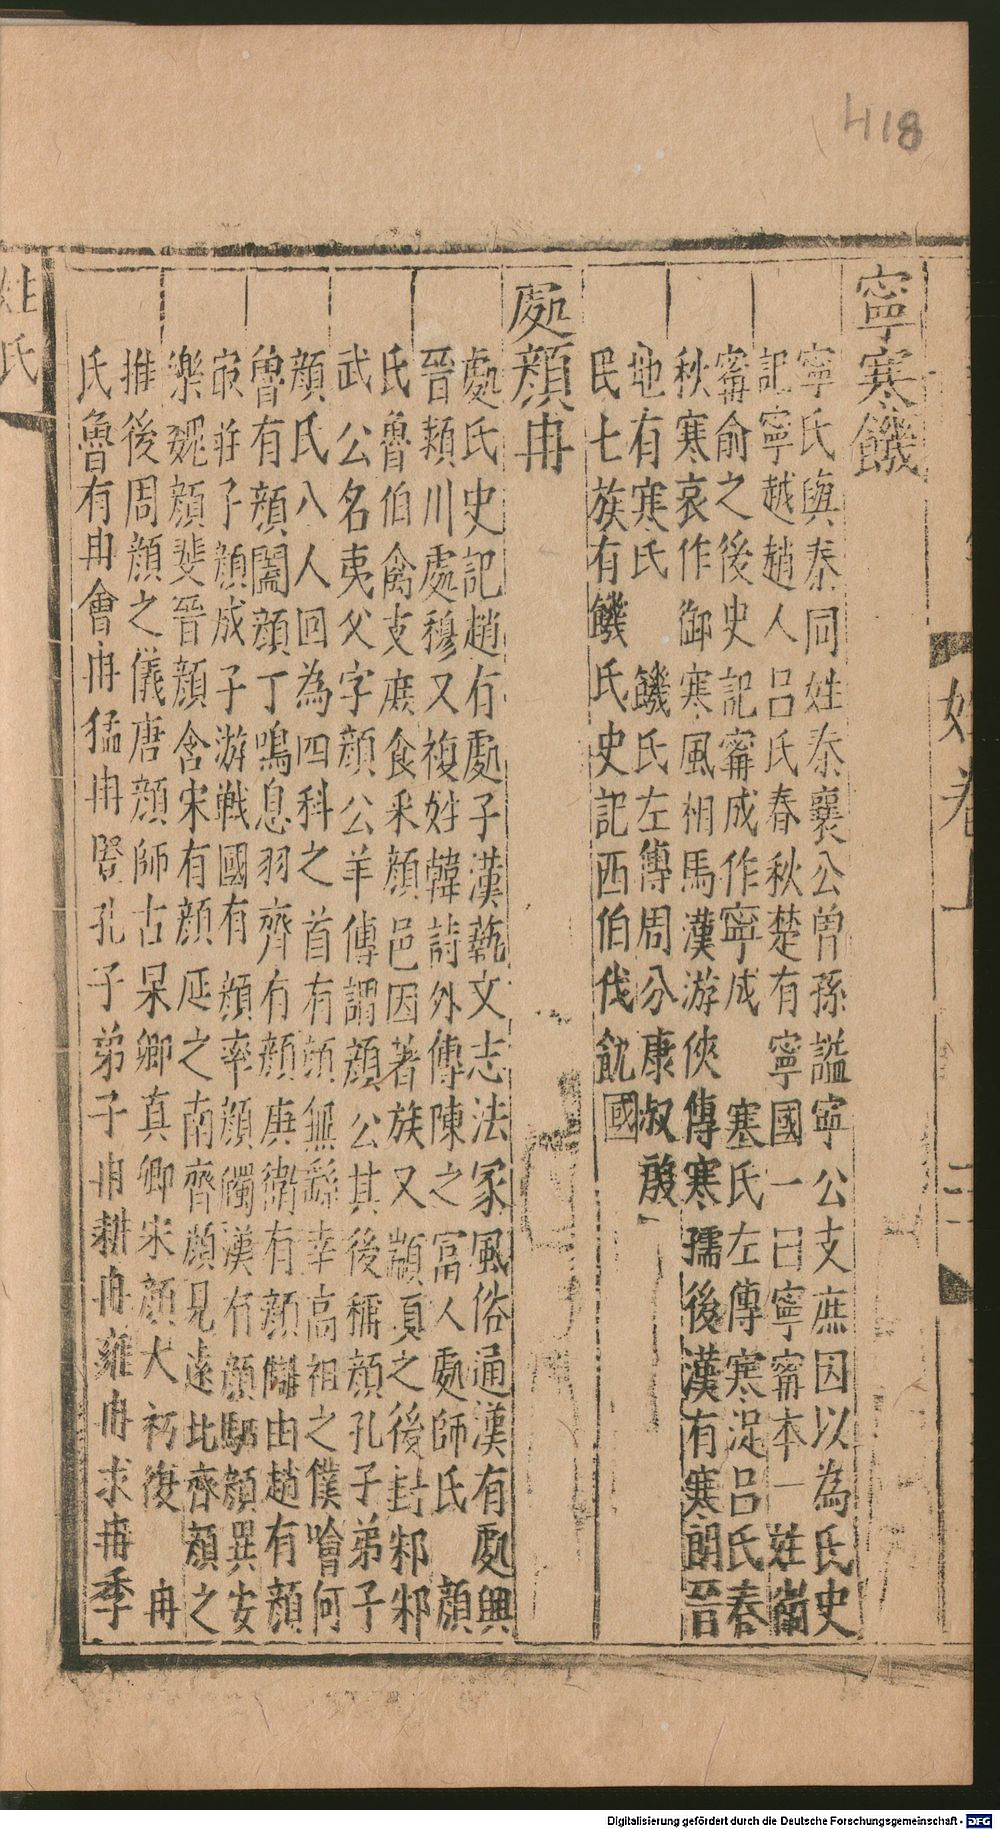 418
寧寒饑
寧氏與秦同姓秦襄公曽孫謚寧公支庶因以為氏史
記寧越趙人呂氏春秋楚有寧國一曰寧甯本一姓衛
甯俞之後史記甯成作寧成　寒氏左傳寒浞呂氏春
秋寒哀作御寒風相馬漢游俠傳寒孺後漢有寒朗晉
地有寒氏　饑氏左傳周分康叔殷
民七族有饑氏史記西伯伐飢國
處顏冉
處氏史記趙有處子漢藝文志法家風俗通漢有處興
晉頴川處穆又複姓韓詩外傳陳之富人處師氏　顏
氏魯伯禽支庶食采顏邑因著族又顓頊之後封邾邾
武公名夷父字顏公羊傳謂顏公其後稱顏孔子弟子
顏氏八人回為四科之首有顏無繇幸高祖之僕噲何
魯有顏闔顏丁鳴息羽齊有顏庚衛有顏讎由趙有顏
冣莊子顏成子游戰國有顏率顏斶漢有顏駟顏異安
樂顏斐晉顏含宋有顏延之南齊顏見遠北齊顏之
推後周顏之儀唐顏師古杲卿真卿宋顏大初復　冉
氏魯有冉會冉猛冉豎孔子弟子冉耕冉雍冉求冉季
姓氏
姓卷上
二
Digitalisierung gefördert durch die Deutsche Forschungsgemeinschaft - DFG